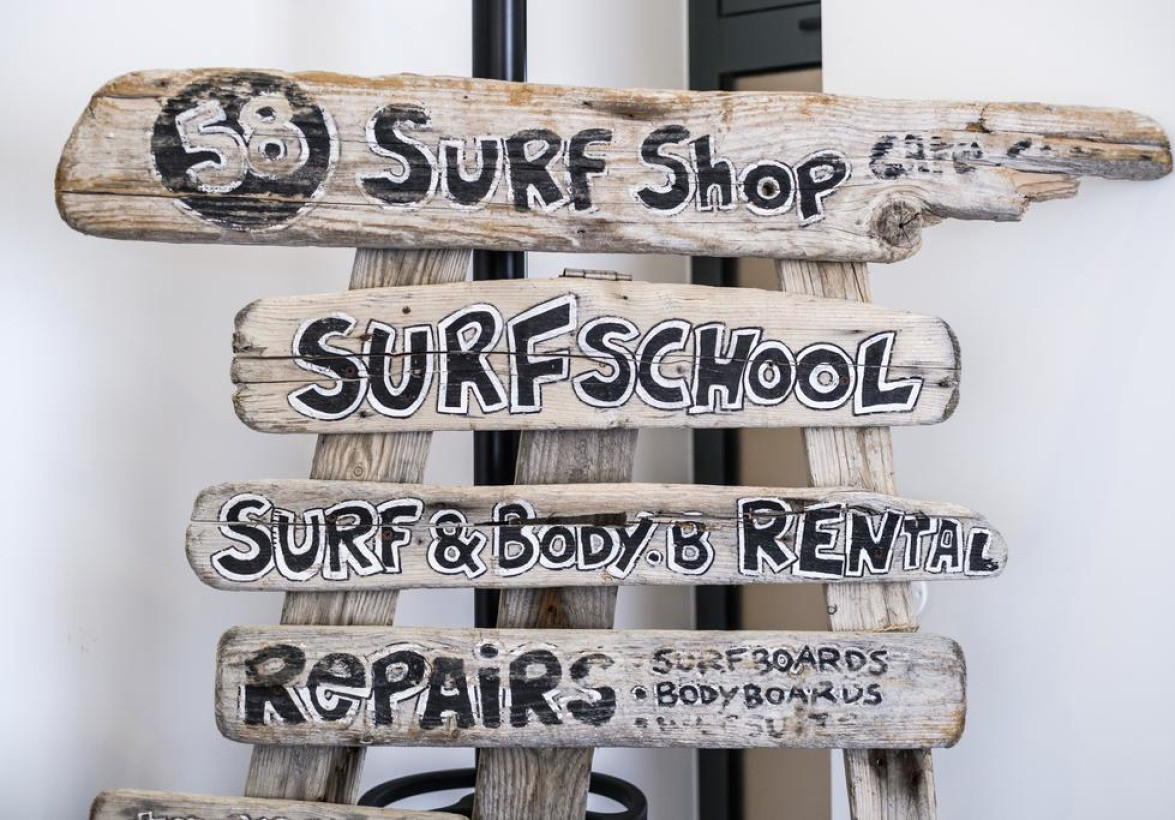 58 SURF Shop
SURFSCHOOL
SURF & BODY.B RENTAL
RePAiRS
SURFBOARDS
• BODYBOARDS